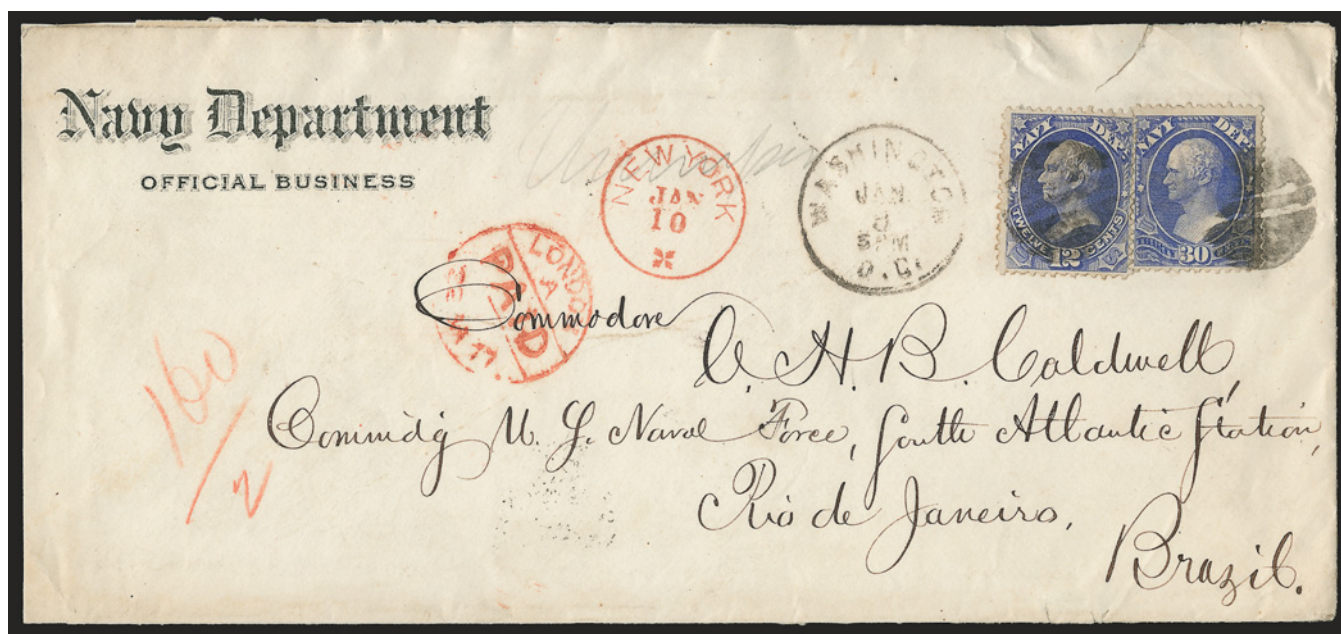 Navy Department
OFFICIAL BUSINESS
NEW YORK
JAN
10
WASHINGTON
JAN
5PM
D.C.
NAVY DEP'T
TWELVE 12 CENTS
NAVY DEP'T
30
LONDON
PAID
JA 77
Commodore
C. H. B. Caldwell,
Commid'g U. S. Naval Force, South Atlantic Station,
Rio de Janeiro,
Brazil.
160/2